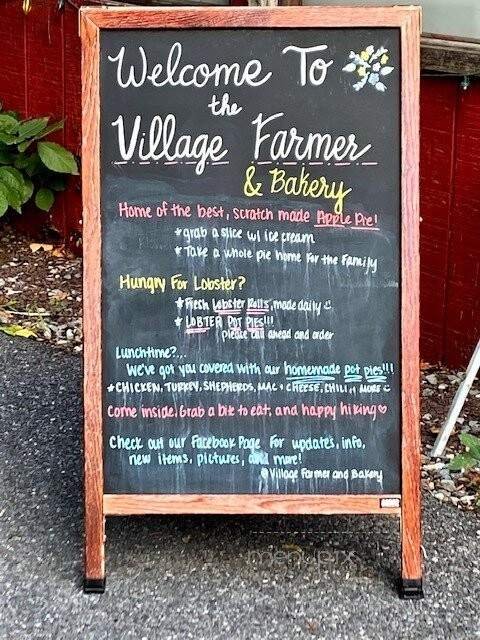 Welcome To
the
Village Farmer
& Bakery
Home of the best, scratch made Apple Pie!
*grab a slice w/ ice cream
*Take a whole pie home for the Family
Hungry For Lobster?
*Fresh Lobster Rolls, made daily
*LOBTER POT PIES!!!
please call ahead and order
Lunchtime?...
We've got you covered with our homemade pot pies!!!
*CHICKEN, TURKEY, SHEPHERDS, MAC + CHEESE, CHILI, + MORE
Come inside, Grab a bite to eat, and happy hiking♡
Check out our Facebook Page for updates, info,
new items, pictures, and more!
@Village Farmer and Bakery
menupix